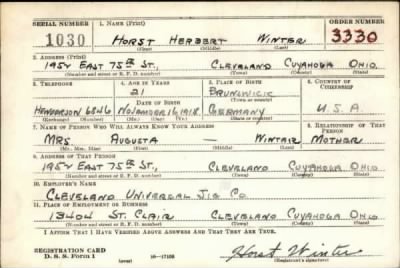 SERIAL NUMBER 1. NAME (Print) ORDER NUMBER
1030 HORST HERBERT WINTER 3330
(First) (Middle) (Last)
2. ADDRESS (Print)
1954 EAST 75th ST., CLEVELAND CUYAHOGA OHIO.
(Number and street or R. F. D. number) (Town) (County) (State)
3. TELEPHONE 4. AGE IN YEARS 5. PLACE OF BIRTH 6. COUNTRY OF CITIZENSHIP
21 BRUNSWICK
DATE OF BIRTH (Town or county)
HENDERSON 6846 NOVEMBER 16, 1918 GERMANY U.S.A.
(Exchange) (Number) (Mo.) (Day) (Yr.) (State or country)
7. NAME OF PERSON WHO WILL ALWAYS KNOW YOUR ADDRESS 8. RELATIONSHIP OF THAT PERSON
MRS AUGUSTA — WINTAIR MOTHER
(Mr., Mrs., Miss) (First) (Middle) (Last)
9. ADDRESS OF THAT PERSON
1954 EAST 75th ST., CLEVELAND CUYAHOGA OHIO
(Number and street or R. F. D. number) (Town) (County) (State)
10. EMPLOYER'S NAME
CLEVELAND UNIVERSAL JIG CO.
11. PLACE OF EMPLOYMENT OR BUSINESS
13404 ST. CLAIR CLEVELAND CUYAHOGA OHIO
(Number and street or R. F. D. number) (Town) (County) (State)
I AFFIRM THAT I HAVE VERIFIED ABOVE ANSWERS AND THAT THEY ARE TRUE.
REGISTRATION CARD
D. S. S. FORM 1 (over) 16—17105 Horst Winter
(Registrant's signature)